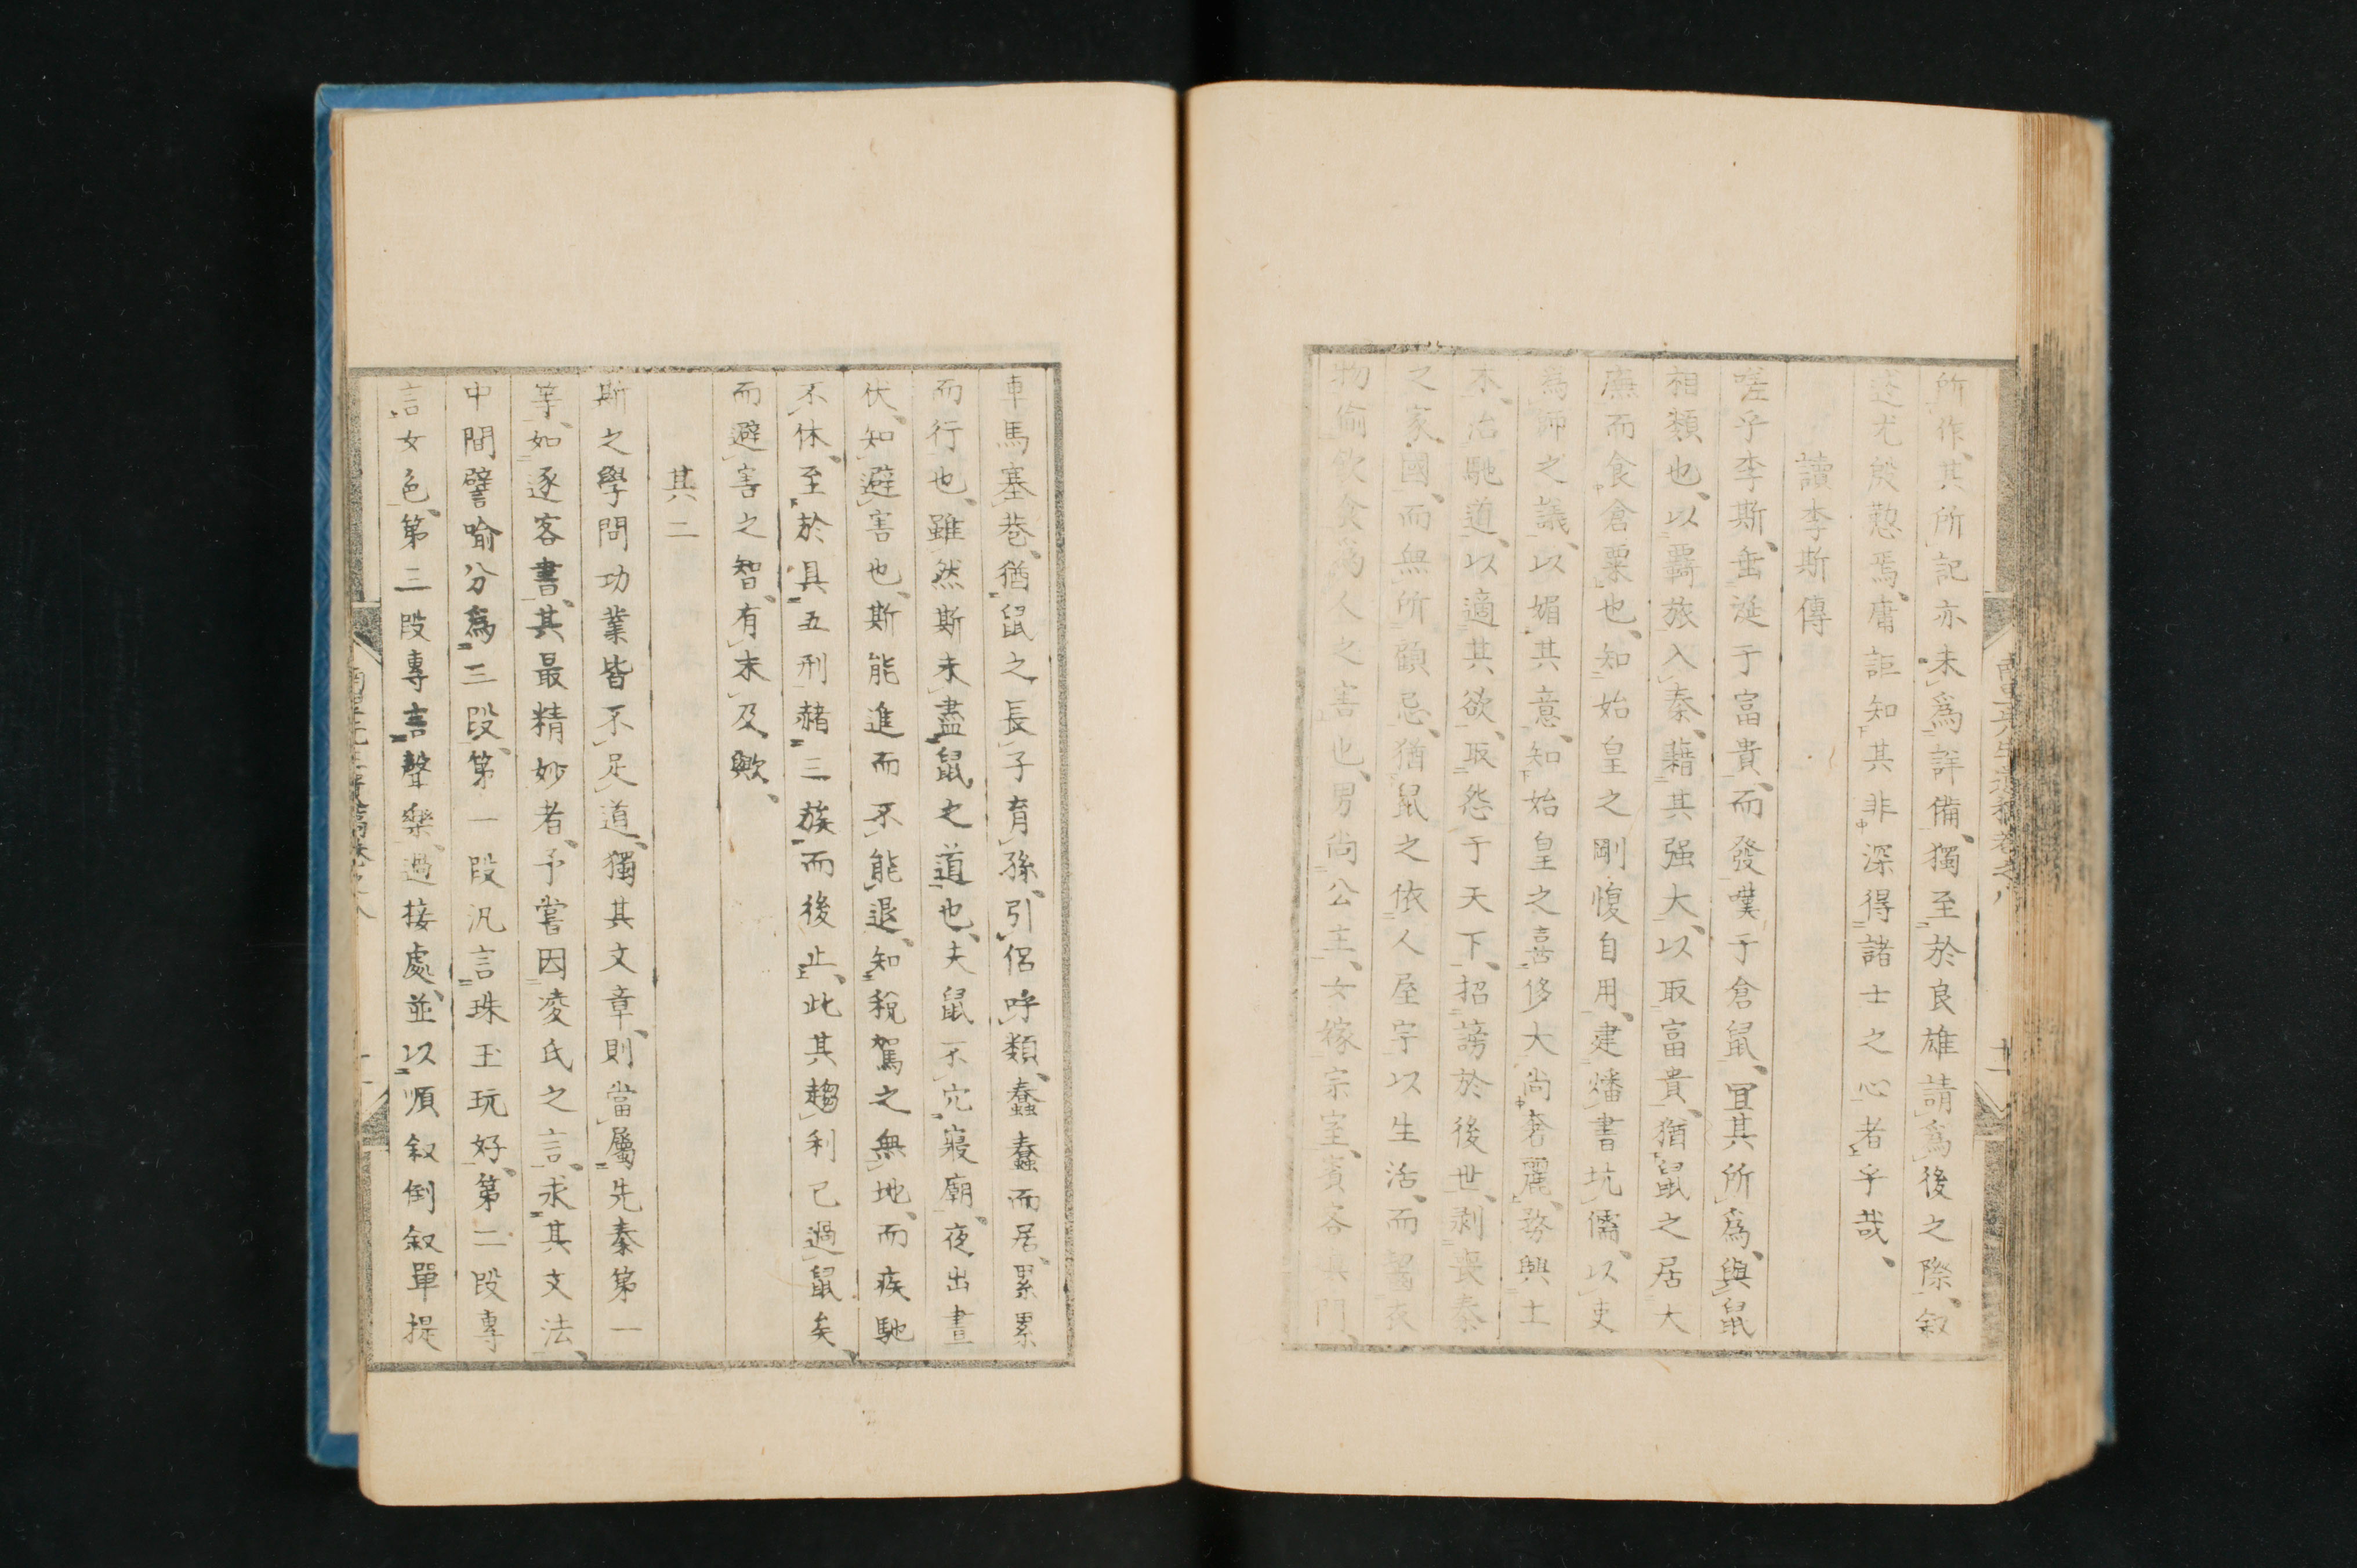 所作、其所記亦未爲詳備、獨至於良雄請爲後之際、叙
述尤慇懃焉、庸詎知其非深得諸士之心者乎哉、
讀李斯傳
嗟乎李斯、垂涎于富貴、而發嘆于倉鼠、宜其所爲、與鼠
相類也、以羇旅入秦、藉其强大、以取富貴、猶鼠之居大
廡而食倉粟也、知始皇之剛愎自用、建燔書坑儒、以吏
爲師之議、以媚其意、知始皇之喜侈大尚奢麗、務興土
木、治馳道、以適其欲、取怨于天下、招謗於後世、剥喪秦
之家國、而無所顧忌、猶鼠之依人屋宇以生活、而齧衣
物偷飲食爲人之害也、男尚公主、女嫁宗室、賓客與門、
車馬塞巷、猶鼠之長子育孫、引侶呼類、蠢蠢而居、累累
而行也、雖然斯未盡鼠之道也、夫鼠不穴寢廟、夜出晝
伏、知避害也、斯能進而不能退、知稅駕之無地、而疾馳
不休、至於具五刑赭三族而後止、此其趨利已過鼠矣、
而避害之智、有未及歟、
其二
斯之學問功業皆不足道、獨其文章、則當屬先秦第一
等、如逐客書、其最精妙者、予嘗因凌氏之言、求其文法、
中間譬喻分爲三段、第一段汎言珠玉玩好、第二段專
言女色、第三段專言聲樂、過接處、並以順叙倒叙單提